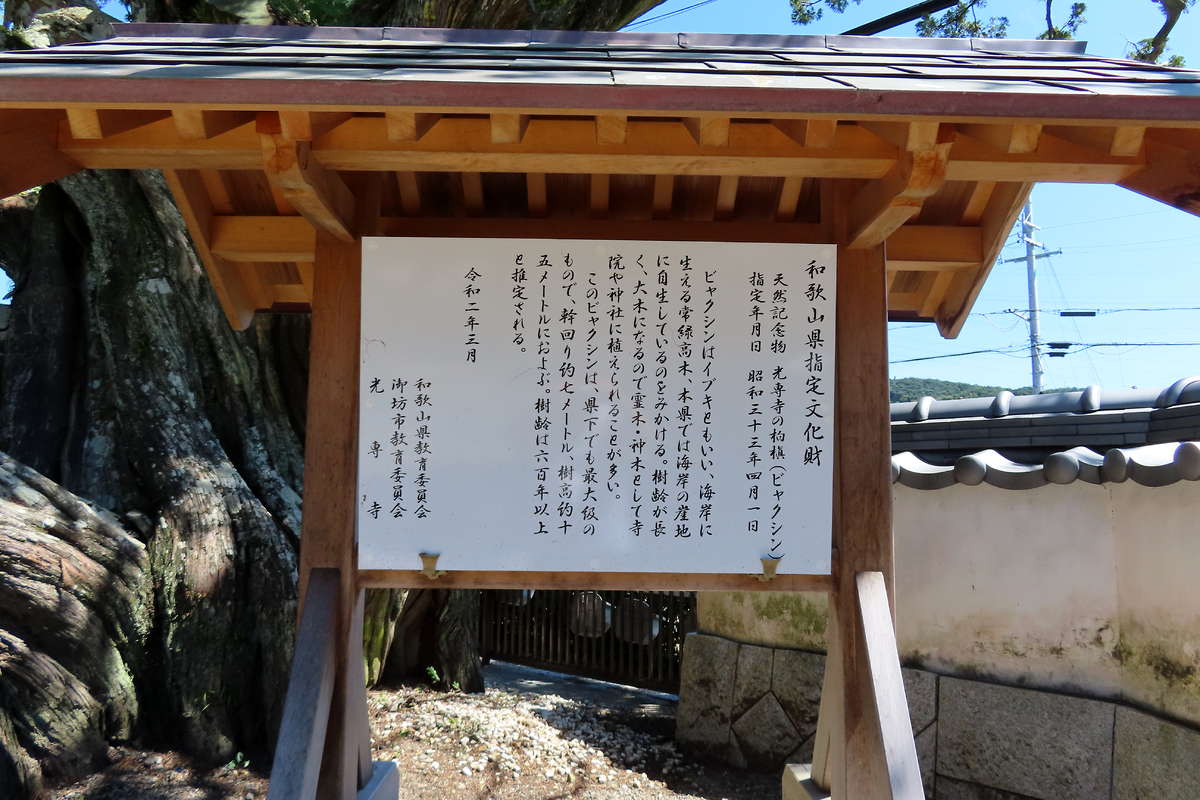 和歌山県指定文化財
天然記念物　光専寺の柏槇（ビャクシン）
指定年月日　昭和三十三年四月一日
ビャクシンはイブキともいい、海岸に
生える常緑高木、本県では海岸の崖地
に自生しているのをみかける。樹齢が長
く、大木になるので霊木・神木として寺
院や神社に植えられることが多い。
このビャクシンは、県下でも最大級の
もので、幹回り約七メートル、樹高約十
五メートルにおよぶ。樹齢は六百年以上
と推定される。
令和二年三月
和歌山県教育委員会
御坊市教育委員会
光専寺